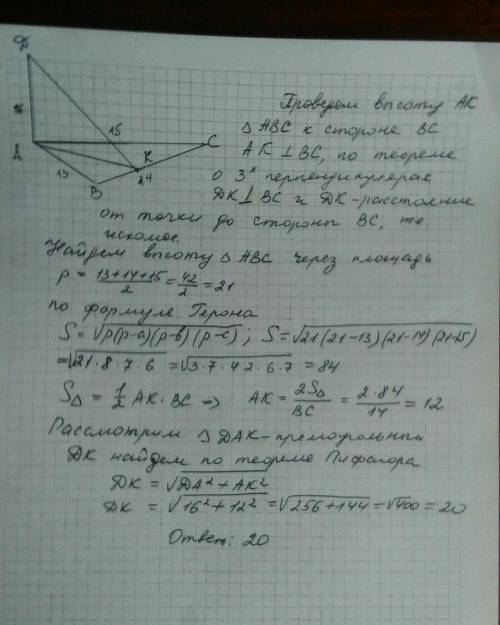 Д
15
A
K
C
13
B
14
Проведем высоту AK
△ ABC к стороне BC
AK ⊥ BC, по теореме
о 3ˣ перпендикулярах
DK ⊥ BC и DK - расстояние
от точки до стороны BC, т.е.
искомое.
Найдем высоту △ ABC через площадь
p = (13+14+15)/2 = 42/2 = 21
по формуле Герона
S = √p(p-a)(p-b)(p-c) ; S = √21(21-13)(21-14)(21-15)
= √21·8·7·6 = √3·7·4·2·6·7 = 84
S△ = 1/2 AK·BC => AK = 2S△/BC = 2·84/14 = 12
Рассмотрим △ DAK - прямоугольный
DK найдем по теореме Пифагора
DK = √DA² + AK²
DK = √16² + 12² = √256 + 144 = √400 = 20
Ответ: 20